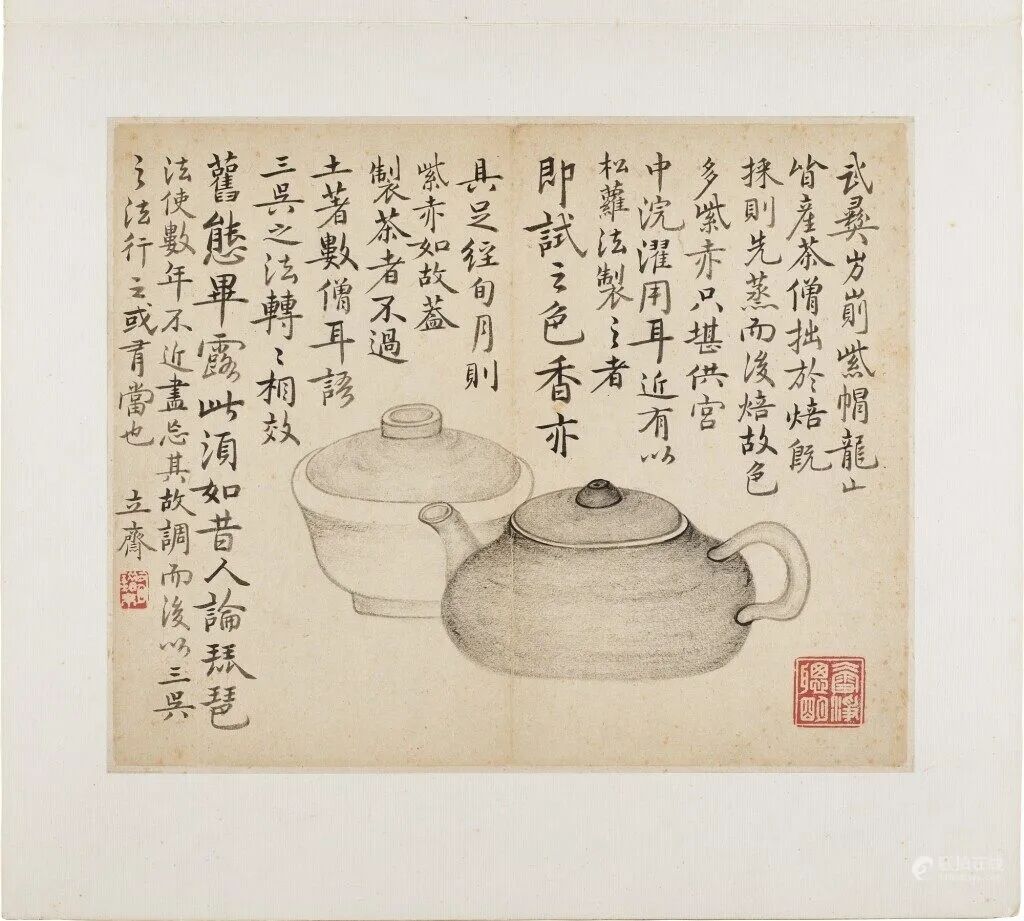 武彝屴崱紫帽龍山
皆産茶僧拙於焙旣
採則先蒸而後焙故色
多紫赤只堪供宮
中浣濯用耳近有以
松蘿法製之者
即試之色香亦
具足經旬月則
紫赤如故蓋
製茶者不過
土著數僧耳語
三吳之法轉〻相效
舊態畢露此須如昔人論琵琶
法使數年不近盡忘其故調而後以三吳
之法行之或有當也
立齋